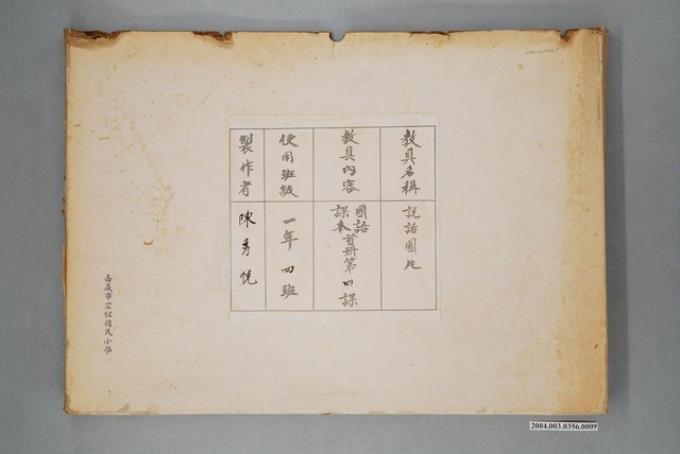 教具名稱
說話圖片
教具內容
國語
課本首册第四課
使用班級
一年四班
製作者
陳秀悅
嘉義市宏仁國民小學
2004.003.0356.0009